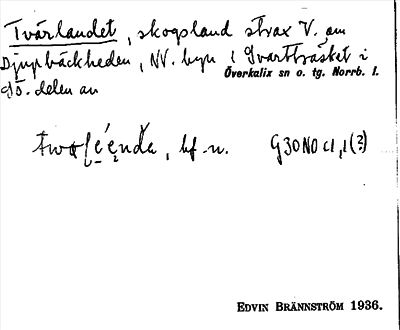 Tvärlandet, skogsland strax V. om
Djupbäckheden, NV. byn i Svartträsket i
Överkalix sn o. tg. Norrb. l.
sö. delen av
bf. n. G30NO c1,1(?)
EDVIN BRÄNNSTRÖM 1936.